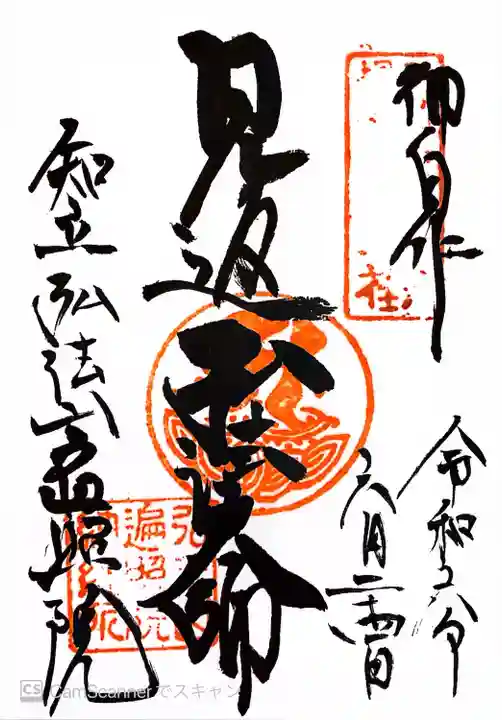 御自作
令和六年
六月二十四日
見返弘法大師
知立弘法
遍照院
弘
遍照院
CS CamScannerでスキャン